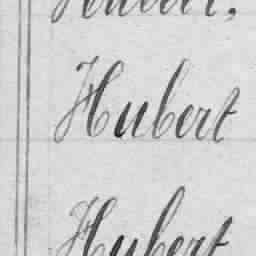 Hubert
Hubert